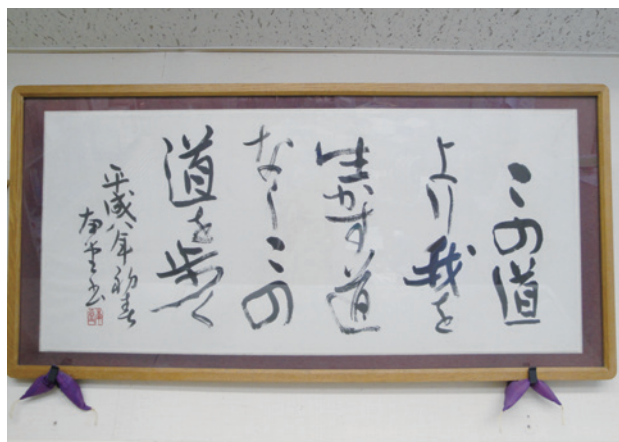 この道
より我を
生かす道
なしこの
道を歩く
平成八年初春